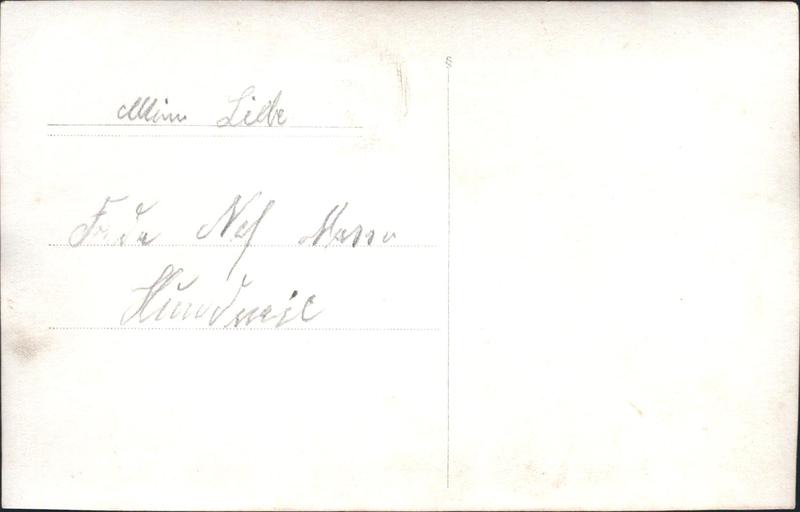 Mein Liebe
Frida Nef
Hundwil